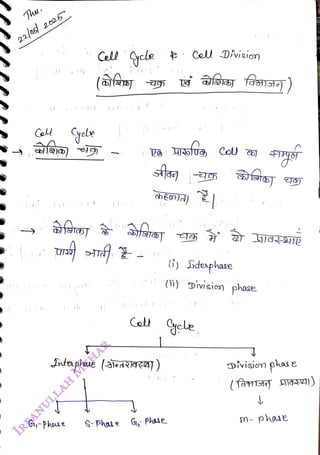 Thu.
22/05/2025
Cell Cycle & Cell Division
(कोशिका चक्र एवं कोशिका विभाजन)
Cell Cycle
→ कोशिका चक्र - एक प्रारूपिक Cell का सम्पूर्ण
जीवन चक्र कोशिका चक्र
कहलाता है|
→ कोशिका के कोशिका चक्र में दो प्रावस्थाएं
पायी जाती है -
(i) Interphase
(ii) Division phase
Cell Cycle
Interphase (अन्तरावस्था) Division phase
(विभाजन प्रावस्था)
G₁-Phase S-Phase G₂-Phase M-phase
IRFANULLAH MAZHAR